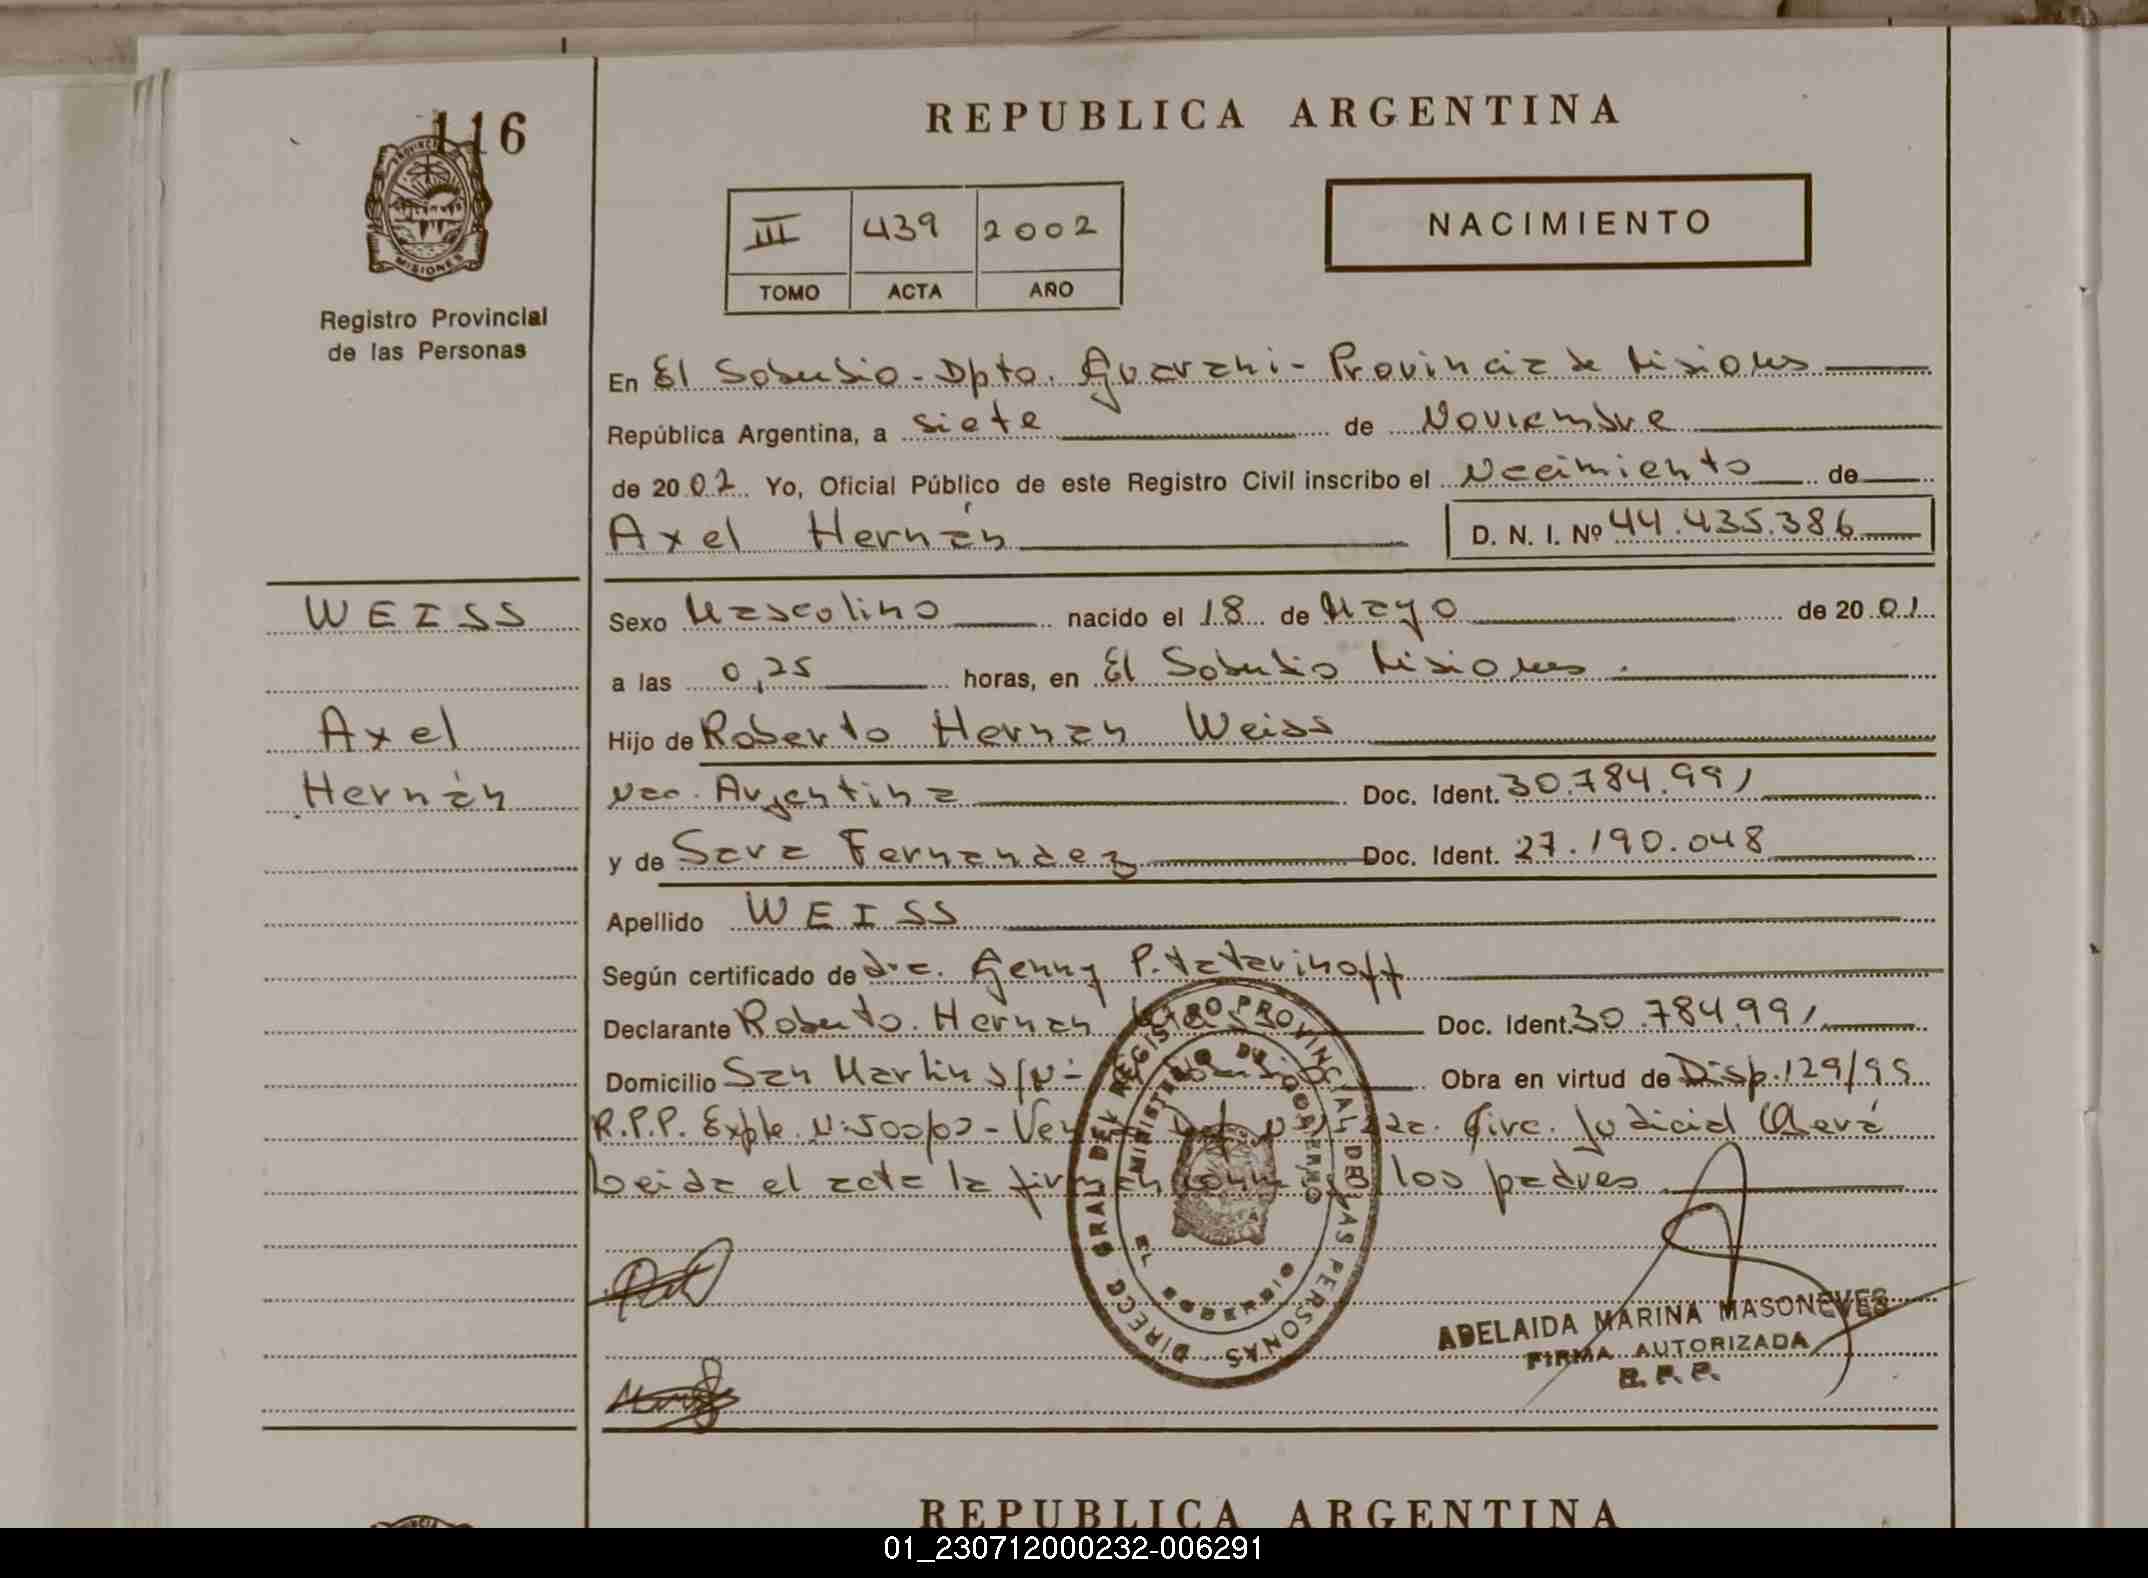 116
REPUBLICA ARGENTINA
III 439 2002
TOMO ACTA AÑO
NACIMIENTO
PROVINCIA
MISIONES
Registro Provincial
de las Personas
En El Soberbio - Dpto. Guarani - Provincia de Misiones
República Argentina, a siete de Noviembre
de 2002 Yo, Oficial Público de este Registro Civil inscribo el Nacimiento de
Axel Hernán D. N. I. Nº 44.435.386
WEISS
Axel
Hernán
Sexo Masculino nacido el 18 de Mayo de 2001
a las 0,25 horas, en El Soberbio Misiones.
Hijo de Roberto Hernan Weiss
Nac. Argentina Doc. Ident. 30.784.991
y de Sara Fernandez Doc. Ident. 27.190.048
Apellido WEISS
Según certificado de dra. Genny P. Tatarinoff
Declarante Roberto Hernan Doc. Ident. 30.784.991
Domicilio San Martin s/n - Obra en virtud de Disp. 129/99
R.P.P. Expte. N: 500/02 - Circ. Judicial Oberá
Leida el acta la los padres
DIRECC GRAL DEL REGISTRO PROVINCIAL DE LAS PERSONAS
MINISTERIO DE GOBIERNO
EL SOBERBIO
ADELAIDA MARINA MASONEVES
FIRMA AUTORIZADA
R. P. P.
REPUBLICA ARGENTINA
01_230712000232-006291